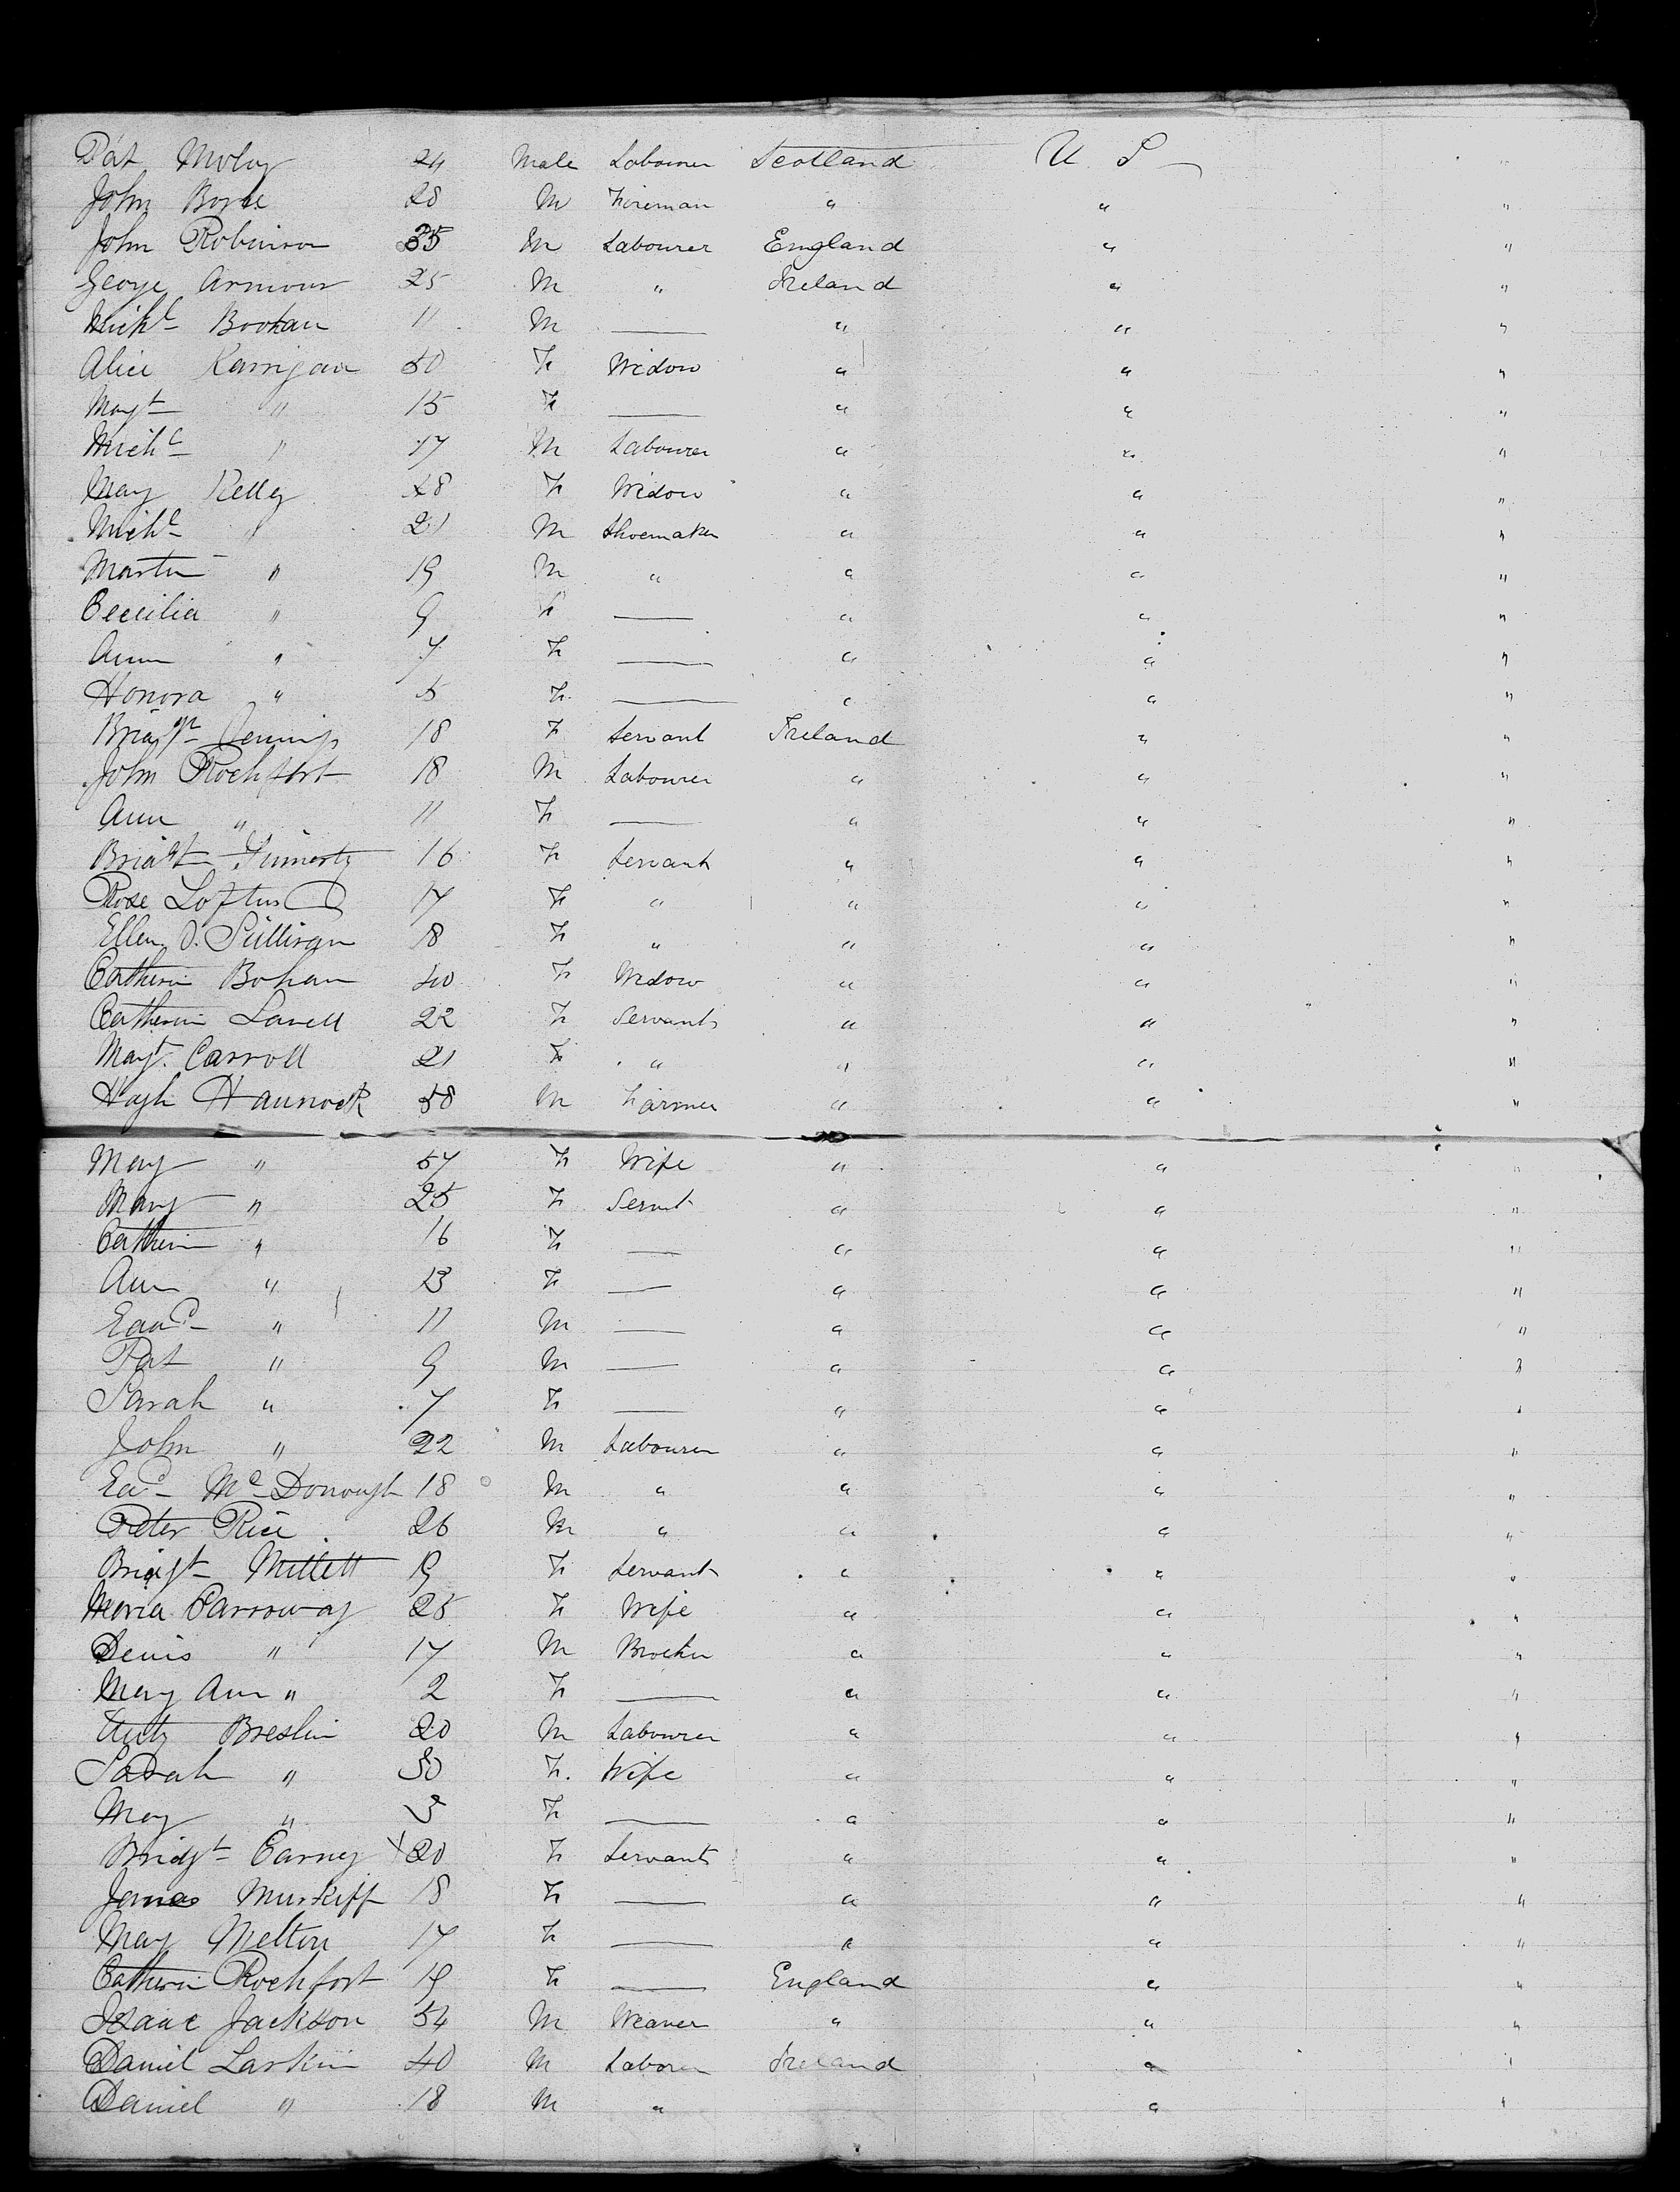 Pat Moloy 24 Male Labourer Scotland U. S "
John Boyle 28 M Fireman " " "
John Robinson 35 M Labourer England " "
George Armour 25 M " Ireland " "
Michl Boohan 11 M — " " "
Alice Karrigan 50 F Widow " " "
Mayt " 15 F — " " "
Michl " 17 M Labourer " " "
Mary Kelly 48 F Widow " " "
Michl " 21 M Shoemaker " " "
Martin " 19 M " " " "
Cecilia " 9 F — " " "
Ann " 7 F — " " "
Honora " 5 F — " " "
Bridgt Jennings 18 F Servant Ireland " "
John Rochfort 18 M Labourer " " "
Ann " 11 F — " " "
Bridgt 16 F Servant " " "
Rose Loftus 17 F " " " "
Ellen O. Sullivan 18 F " " " "
Catherin Bohan 40 F Widow " " "
Catherin Lavell 22 F Servant " " "
Mayt. Carroll 21 F " " " "
Hugh Hannock 58 M Farmer " " "
Mary " 57 F Wife " " "
Mary " 25 F Servnt " " "
Catherin " 16 F — " " "
Ann " 13 F — " " "
Edwd " 11 M — " " "
Pat " 9 M — " " "
Sarah " 7 F — " " "
John " 22 M Labourer " " "
Ed McDonough 18 M " " " "
Peter Rice 26 M " " " "
Bridgt Millett 19 F Servant " " "
Maria Carroway 25 F Wife " " "
Denis " 17 M Brother " " "
Mary Ann " 2 F — " " "
Anty Breslin 20 M Labourer " " "
Sarah " 30 F. Wife " " "
May " 3 F — " " "
Bridgt Carney X 20 F Servant " " "
James Murkiff 18 F — " " "
May Melton 17 F — " " "
Catherin Rochfort 19 F — England " "
Isaac Jackson 54 M Weaver " " "
Daniel Larkin 40 M Laborer Ireland " "
Daniel " 18 M " " "